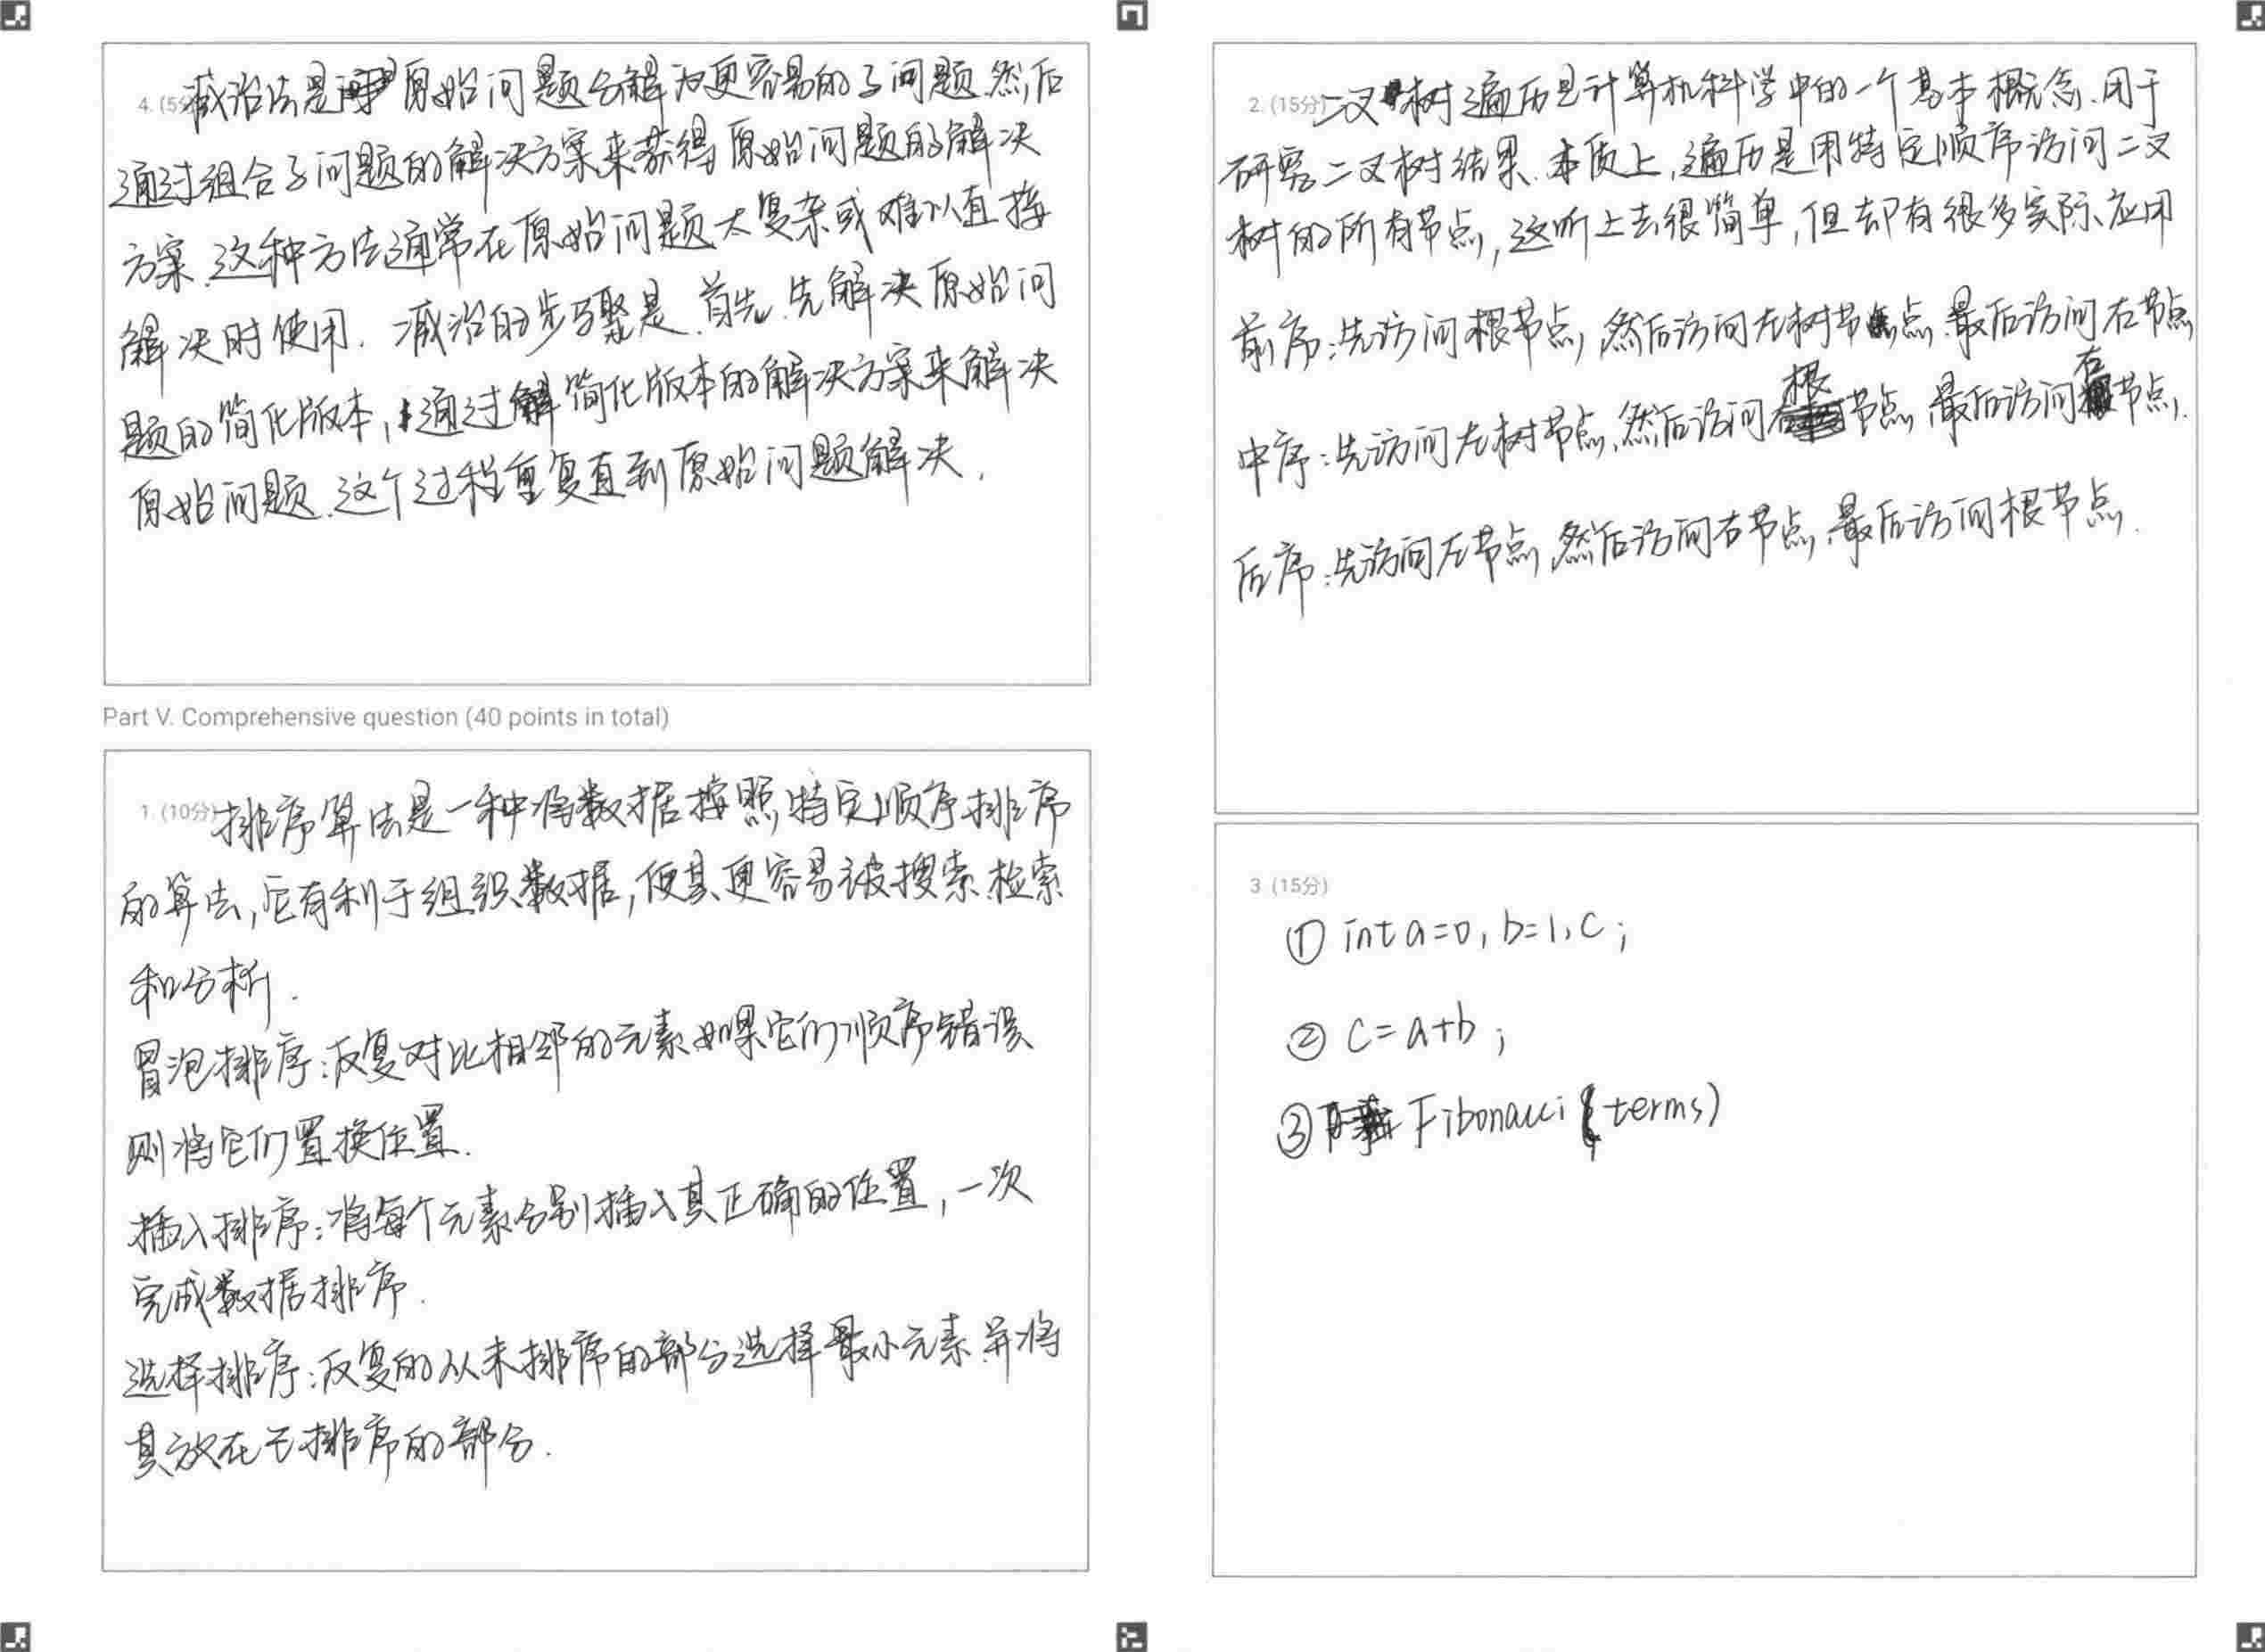 4. (5分) 减治法是将原始问题分解为更容易的子问题.然后
通过组合子问题的解决方案来获得原始问题的解决
方案.这种方法通常在原始问题太复杂或难以直接
解决时使用. 减治的步骤是.首先.先解决原始问
题的简化版本,通过解简化版本的解决方案来解决
原始问题.这个过程重复直到原始问题解决.
Part V. Comprehensive question (40 points in total)
1. (10分) 排序算法是一种将数据按照特定顺序排序
的算法,它有利于组织数据,使其更容易被搜索.检索
和分析.
冒泡排序:反复对比相邻的元素.如果它们顺序错误
则将它们置换位置.
插入排序:将每个元素分别插入其正确的位置,一次
完成数据排序.
选择排序:反复的从未排序的部分选择最小元素.并将
其放在已排序的部分.
2. (15分) 二叉树遍历是计算机科学中的一个基本概念.用于
研究二叉树结果.本质上,遍历是用特定顺序访问二叉
树的所有节点,这听上去很简单,但却有很多实际应用
前序:先访问根节点,然后访问左树节点.最后访问右节点
中序:先访问左树节点,然后访问根节点,最后访问右节点.
后序:先访问左节点,然后访问右节点,最后访问根节点.
3 (15分)
① int a=0, b=1, c;
② c=a+b;
③ Fibonacci (terms)